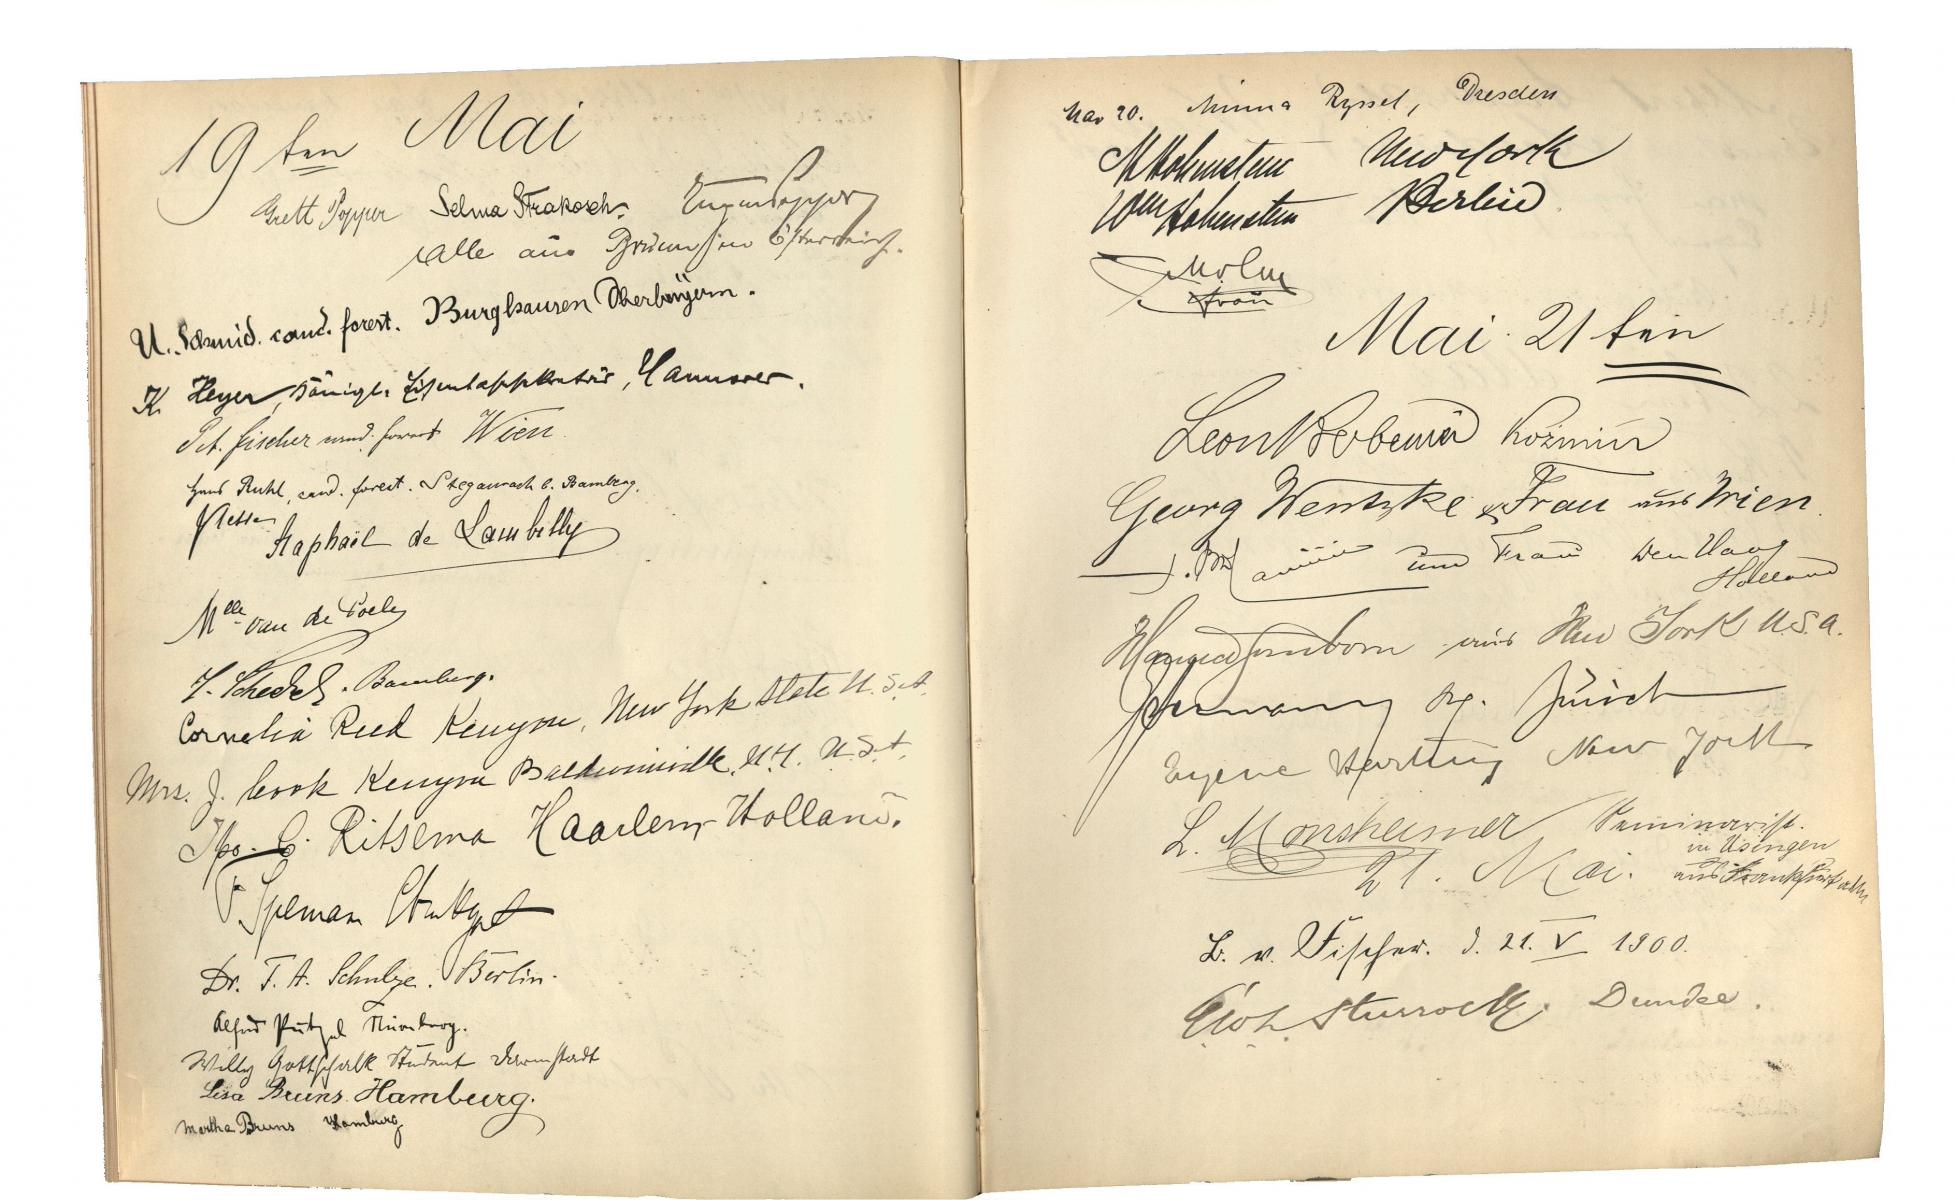 19ten Mai
Grett Popper Selma Strakosch. Eugen Popper
Alle aus Brünn in Österreich.
U. Schmid. cand. forest. Burghausen Oberbayern.
K. Heyer, Königl. Hannover.
Fischer cand. forest Wien
Hans Ruhl, cand. forest. Stegaurach b. Bamberg.
Raphaël de Lambilly
Mlle van de Poele
Schedel. Bamberg.
Cornelia Reed Kenyon, New York State U.S.A.
Mrs. J. Cook Kenyon Baldwinsville N.Y. U.S.A.
C. Ritsema Haarlem Holland.
Speman
Dr. F. A. Schulze. Berlin.
Alfred Nürnberg.
Willy Gottschalk Student Darmstadt
Lisa Bruns. Hamburg.
Martha Bruns Hamburg
Mai 20. Minna Ryssel, Dresden
M Hohenstein New York
Wm Hohenstein Berlin
Frau
Mai 21ten
Leon Koźmin
Georg Wentzke & Frau aus Wien.
und Frau Den Haag
Holland
aus New York U.S.A.
Hermann Zürich
Eugene Hartung New York
L. Monsheimer Seminarist.
in Usingen
21. Mai. aus Frankfurt a/M
v. Fischer. d. 21. V 1900.
Sturrock. Dundee.